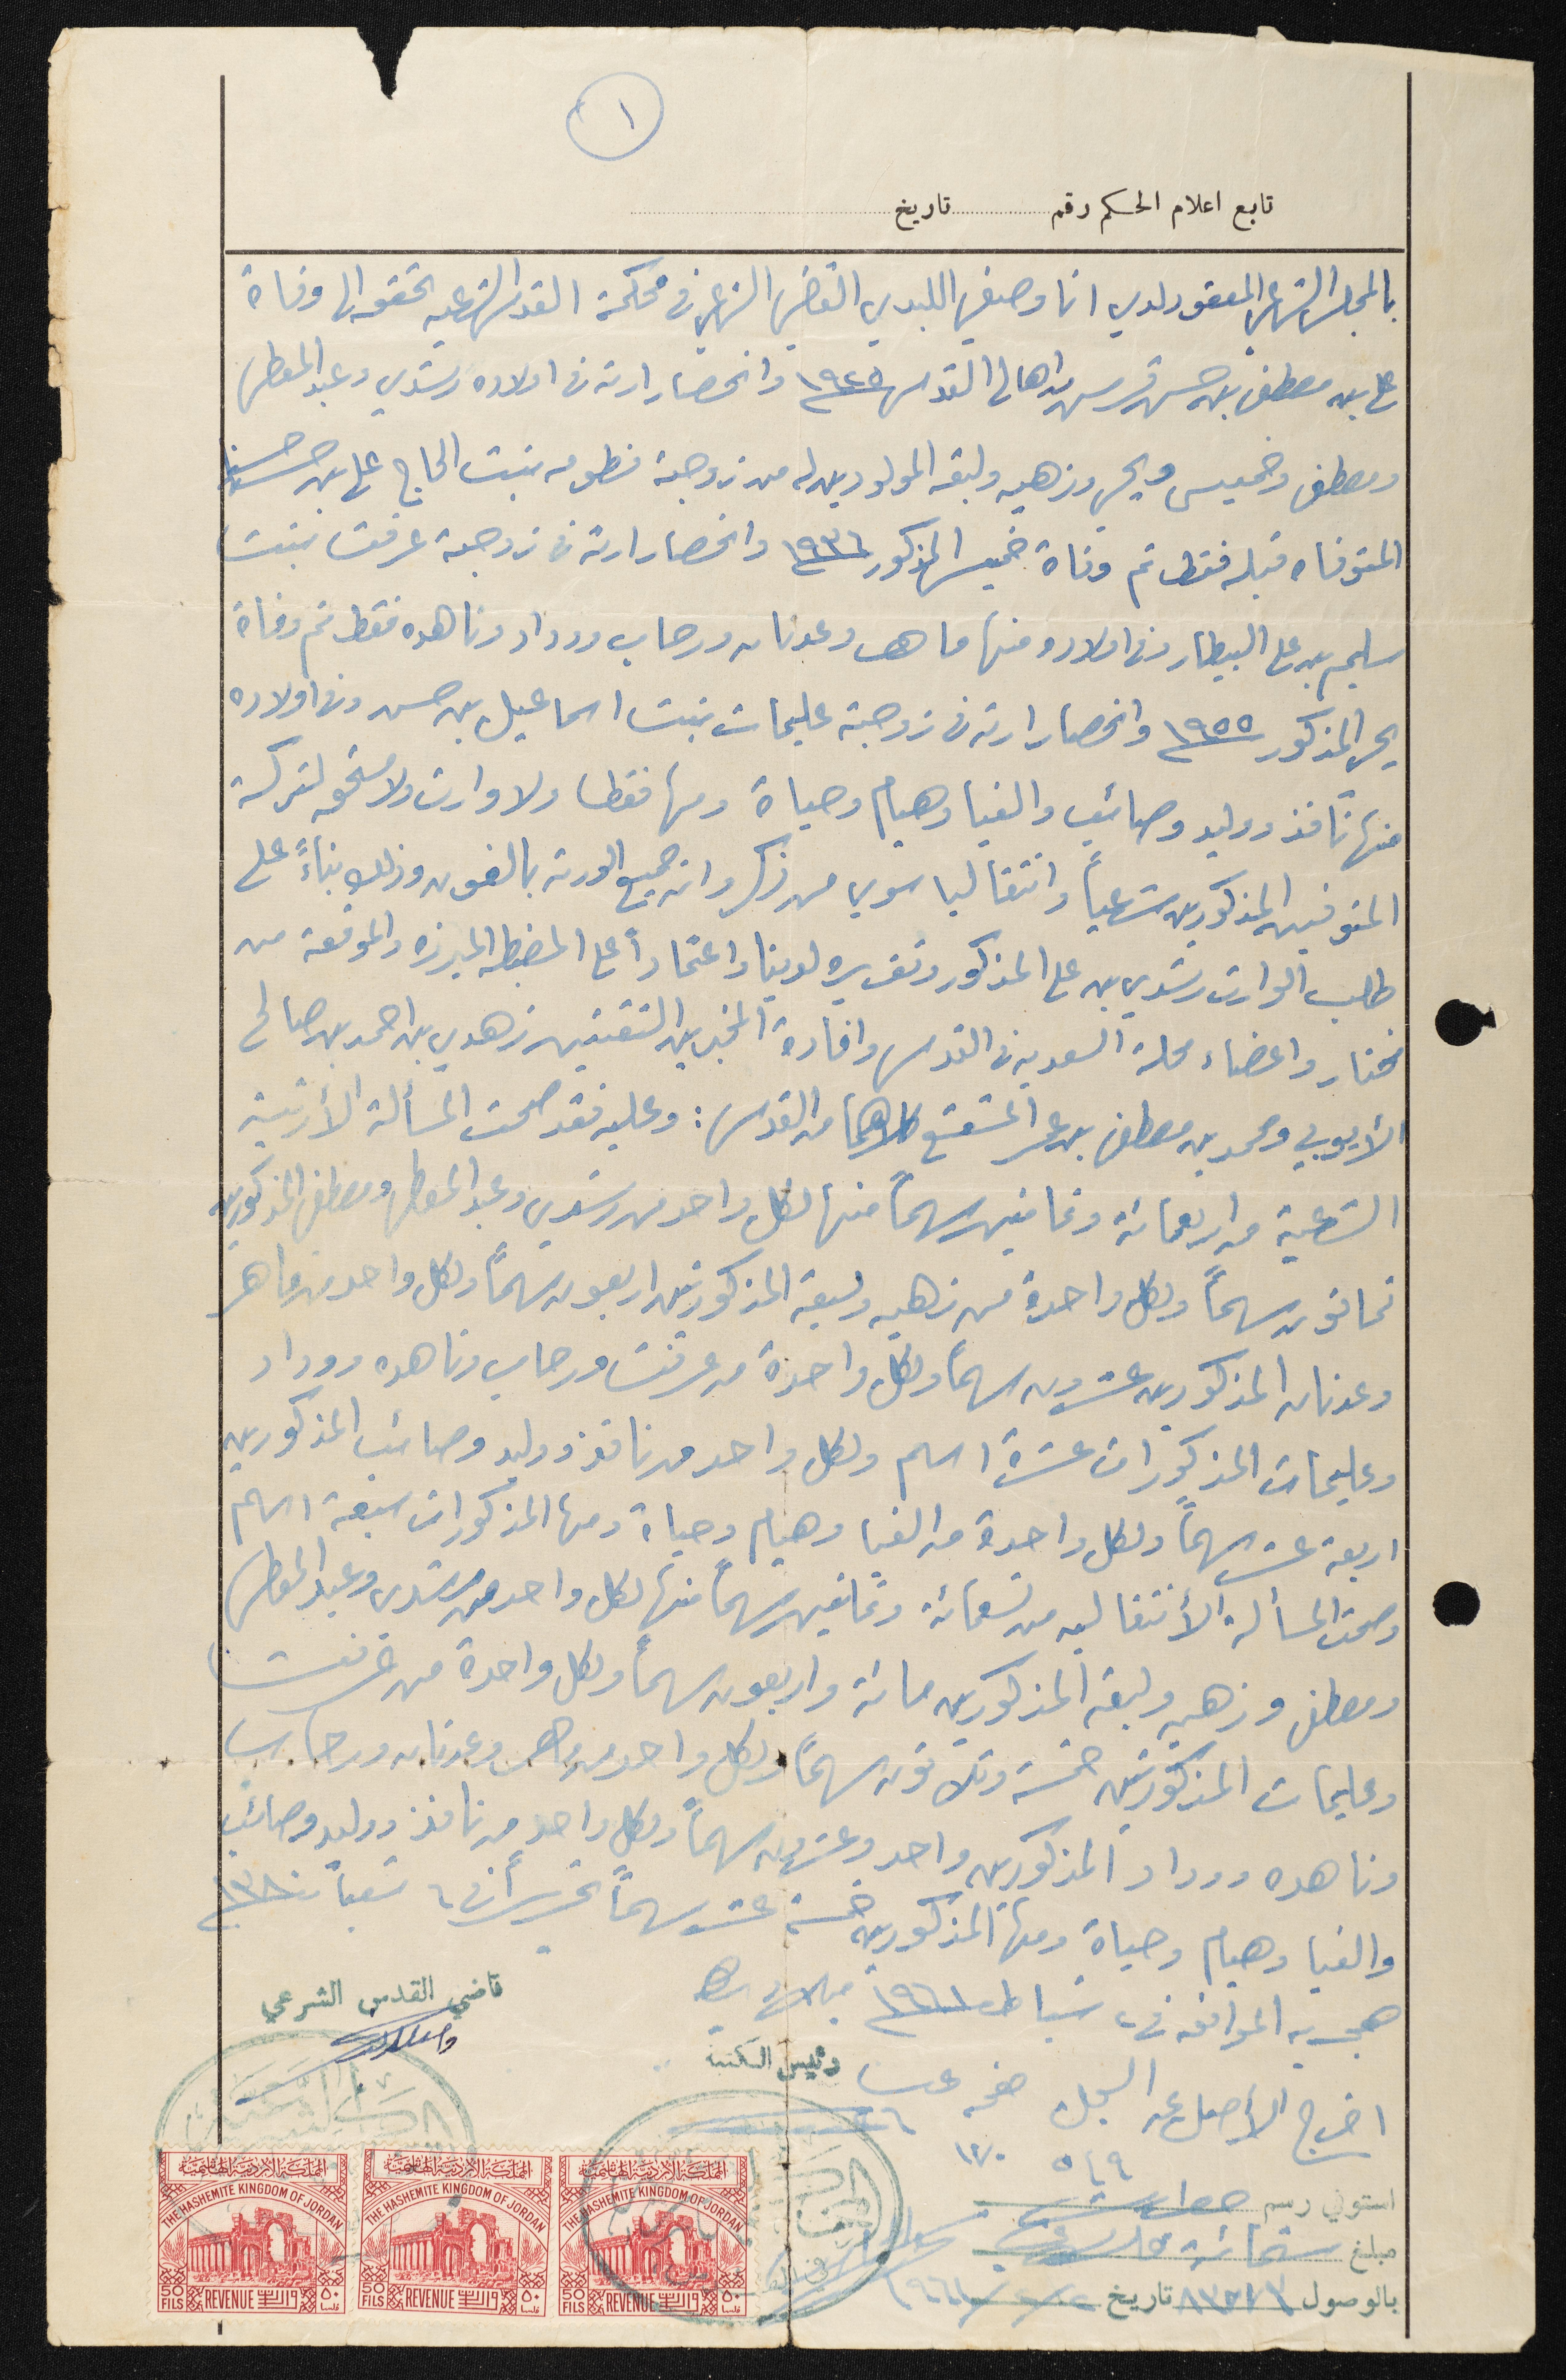 ١
تابع اعلام الحكم رقم ........ تاريخ ........
بالمجلس الشرعي المعقود لدي انا وصفي اللبدي القاضي الشرعي في محكمة القدس الشرعيه تحقق الى وفاة
علي بن مصطفى بن حسن من اهالي القدس ١٩٢٥ وانحصار ارثه في اولاده رشدي وعبد المعطي
ومصطفى وخميس ويحيى وزهيه ولبقه المولودين له من زوجته فطومه بنت الحاج علي بن حسن
المتوفاه قبله فقط ثم وفاة خميس المذكور ١٩٣٦ وانحصار ارثه في زوجته عرفت بنت
سليم بن علي البيطار وفي اولاده منها ماهر وعدنان ورحاب ووداد وناهده فقط ثم وفاة
يحيى المذكور ١٩٥٥ وانحصار ارثه في زوجته عليمات بنت اسماعيل بن حسن وفي اولاده
منها نافذ ووليد وصائب والفيا وهيام وحياة ومها فقط ولا وارث ولا مستحق لتركة
المتوفين المذكورين شرعياً وانتقاليا سوى من ذكر وان جميع الورثه بالغون وذلك بناءً على
طلب الوارث رشدي بن علي المذكور وتقريره لدينا واعتماداً على المضبطه المبرزه والموقعة من
مختار واعضاء محلة السعديه في القدس وافادة المخبرين الثقتين زهدي بن احمد بن صالح
الأيوبي ومحمد بن مصطفى بن عمر كلاهما من القدس: وعليه فقد صحت المسألة الأرثية
الشرعية من اربعمائة وثمانين سهماً منها لكل واحد من رشدي وعبد المعطي ومصطفى المذكورين
ثمانون سهماً ولكل واحدة من زهيه ولبقة المذكورتين اربعون سهماً ولكل واحد من ماهر
وعدنان المذكورين عشرون سهماً ولكل واحدة من عرفت ورحاب وناهده ووداد
وعليمات المذكورات عشرة اسهم ولكل واحد من نافذ ووليد وصائب المذكورين
اربعة عشر سهماً ولكل واحدة من الفيا وهيام وحياة ومها المذكورات سبعة اسهم
وصحت المسألة الأنتقاليه من تسعمائة وثمانين سهماً منها لكل واحد من رشدي وعبد المعطي
ومصطفى وزهيه ولبقه المذكورين مائة واربعون سهماً ولكل واحدة من عرفت
وعليمات المذكورتين خمسة وثلاثون سهماً ولكل واحد من ماهر وعدنان ورحاب
وناهده ووداد المذكورين واحد وعشرون سهماً ولكل واحد من نافذ ووليد وصائب
والفيا وهيام وحياة ومها المذكورين خمسة عشر سهماً تحريراً في ٦ شعبان ١٣٨٠
هجريه الموافق في شباط ١٩٦١ ميلاديه
قاضي القدس الشرعي
رئيس الكتبة
اخرج الأصل عن السجل صفحه عدد
٥٤٩ ١٧٠
استوفي رسم
مبلغ ستمائة فلس
بالوصول تاريخ
المملكة الاردنية الهاشمية
THE HASHEMITE KINGDOM OF JORDAN
50 FILS REVENUE واردات ٥٠ فلسا
المملكة الاردنية الهاشمية
THE HASHEMITE KINGDOM OF JORDAN
50 FILS REVENUE واردات ٥٠ فلسا
المملكة الاردنية الهاشمية
THE HASHEMITE KINGDOM OF JORDAN
50 FILS REVENUE واردات ٥٠ فلسا